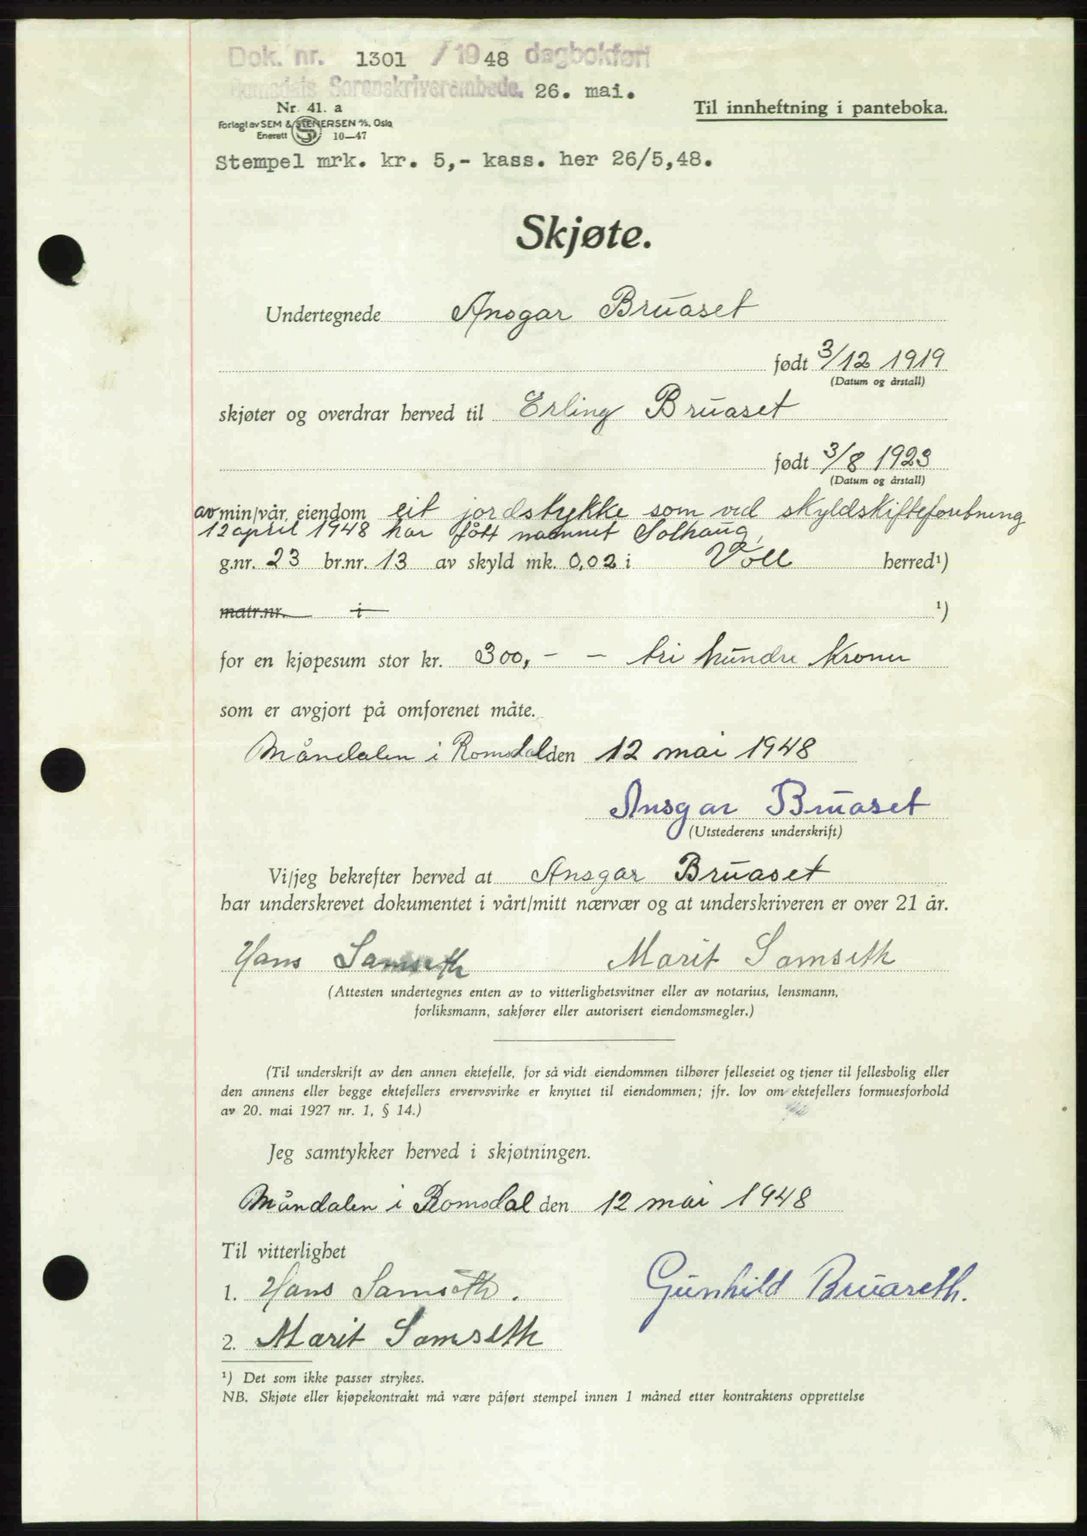 Dok. nr. 1301 / 1948 dagbokført
Romsdals Sorenskriverembede. 26. mai.
Nr. 41. a
Forlagt av SEM & STENERSEN A/S, Oslo
Enerett 10—47
Til innheftning i panteboka.
Stempel mrk. kr. 5,- kass. her 26/5,48.
Skjøte.
Undertegnede Ansgar Bruaset
født 3/12 1919
(Datum og årstall)
skjøter og overdrar herved til Erling Bruaset
født 3/8 1923
(Datum og årstall)
av min/vår eiendom eit jordstykke som ved skyldskifteforretning
12 april 1948 har fått namnet Solhaug,
g.nr. 23 br.nr. 13 av skyld mk. 0,02 i Voll herred¹)
matr.nr. i ¹)
for en kjøpesum stor kr. 300,- - tri hundre kroner
som er avgjort på omforenet måte.
Måndalen i Romsdal den 12 mai 1948
Ansgar Bruaset
(Utstederens underskrift)
Vi/jeg bekrefter herved at Ansgar Bruaset
har underskrevet dokumentet i vårt/mitt nærvær og at underskriveren er over 21 år.
Hans Samseth Marit Samseth
(Attesten undertegnes enten av to vitterlighetsvitner eller av notarius, lensmann,
forliksmann, sakfører eller autorisert eiendomsmegler.)
(Til underskrift av den annen ektefelle, for så vidt eiendommen tilhører felleseiet og tjener til fellesbolig eller
den annens eller begge ektefellers ervervsvirke er knyttet til eiendommen; jfr. lov om ektefellers formuesforhold
av 20. mai 1927 nr. 1, § 14.)
Jeg samtykker herved i skjøtningen.
Måndalen i Romsdal den 12 mai 1948
Til vitterlighet
1. Hans Samseth. Gunhild Bruaseth.
2. Marit Samseth
¹) Det som ikke passer strykes.
NB. Skjøte eller kjøpekontrakt må være påført stempel innen 1 måned etter kontraktens opprettelse